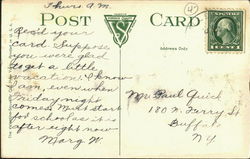 Thurs A.M.
POST CARD
Rec'd your
card. Suppose
you were glad
to get a little
vacation. I know
I am, even when
Friday night
comes. Must start
for school as it is
after eight now
Marg W.
Mr Paul Quick
180 N. Ferry St
Buffalo
N.Y.